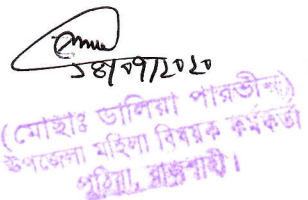 ১৪/০৭/২০২০
(মোছাঃ ডালিয়া পারভীন)
উপজেলা মহিলা বিষয়ক কর্মকর্তা
পুঠিয়া, রাজশাহী।